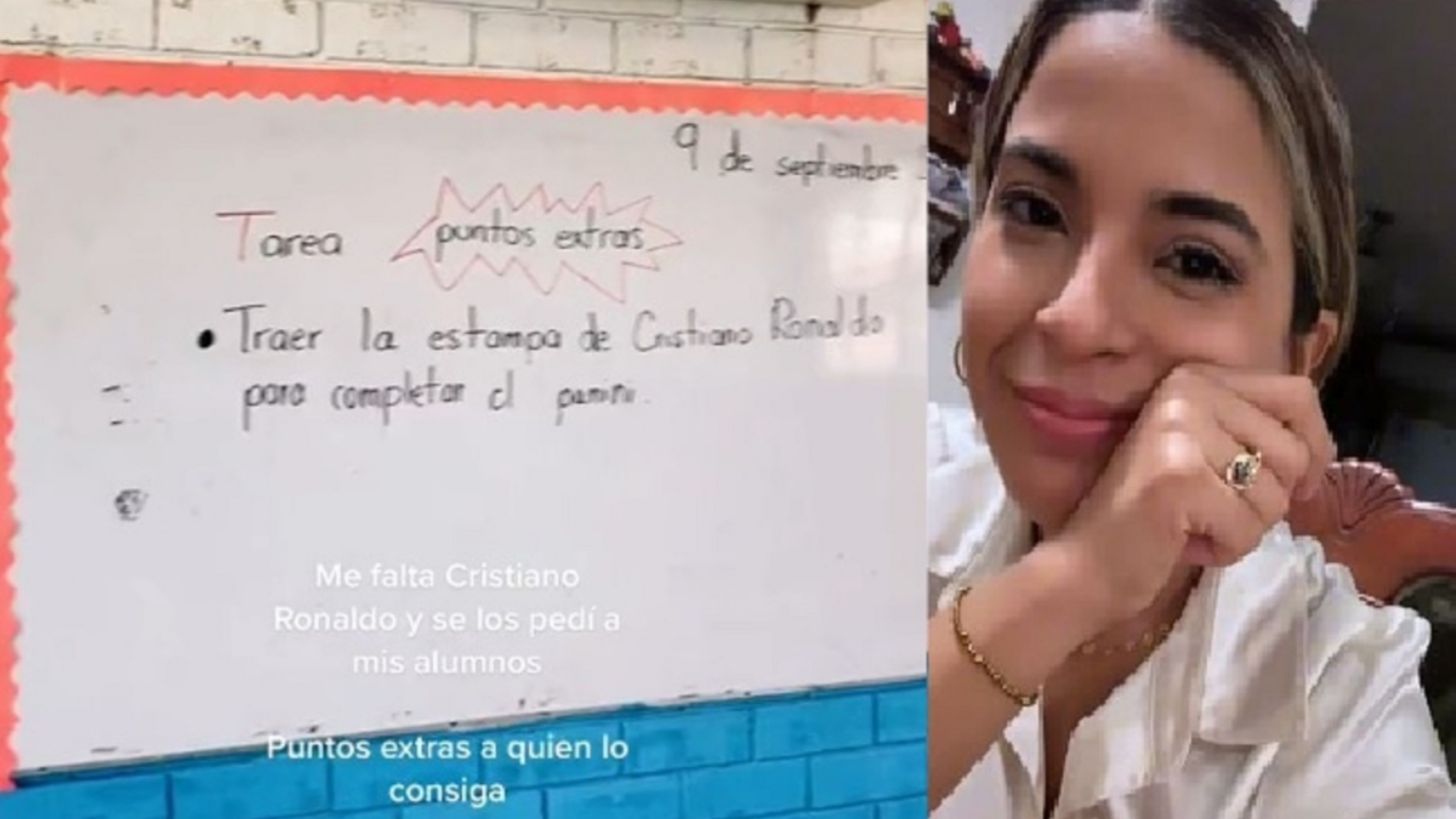 9 de septiembre
Tarea puntos extras
• Traer la estampa de Cristiano Ronaldo
para completar el panini.
Me falta Cristiano
Ronaldo y se los pedí a
mis alumnos
Puntos extras a quien lo
consiga